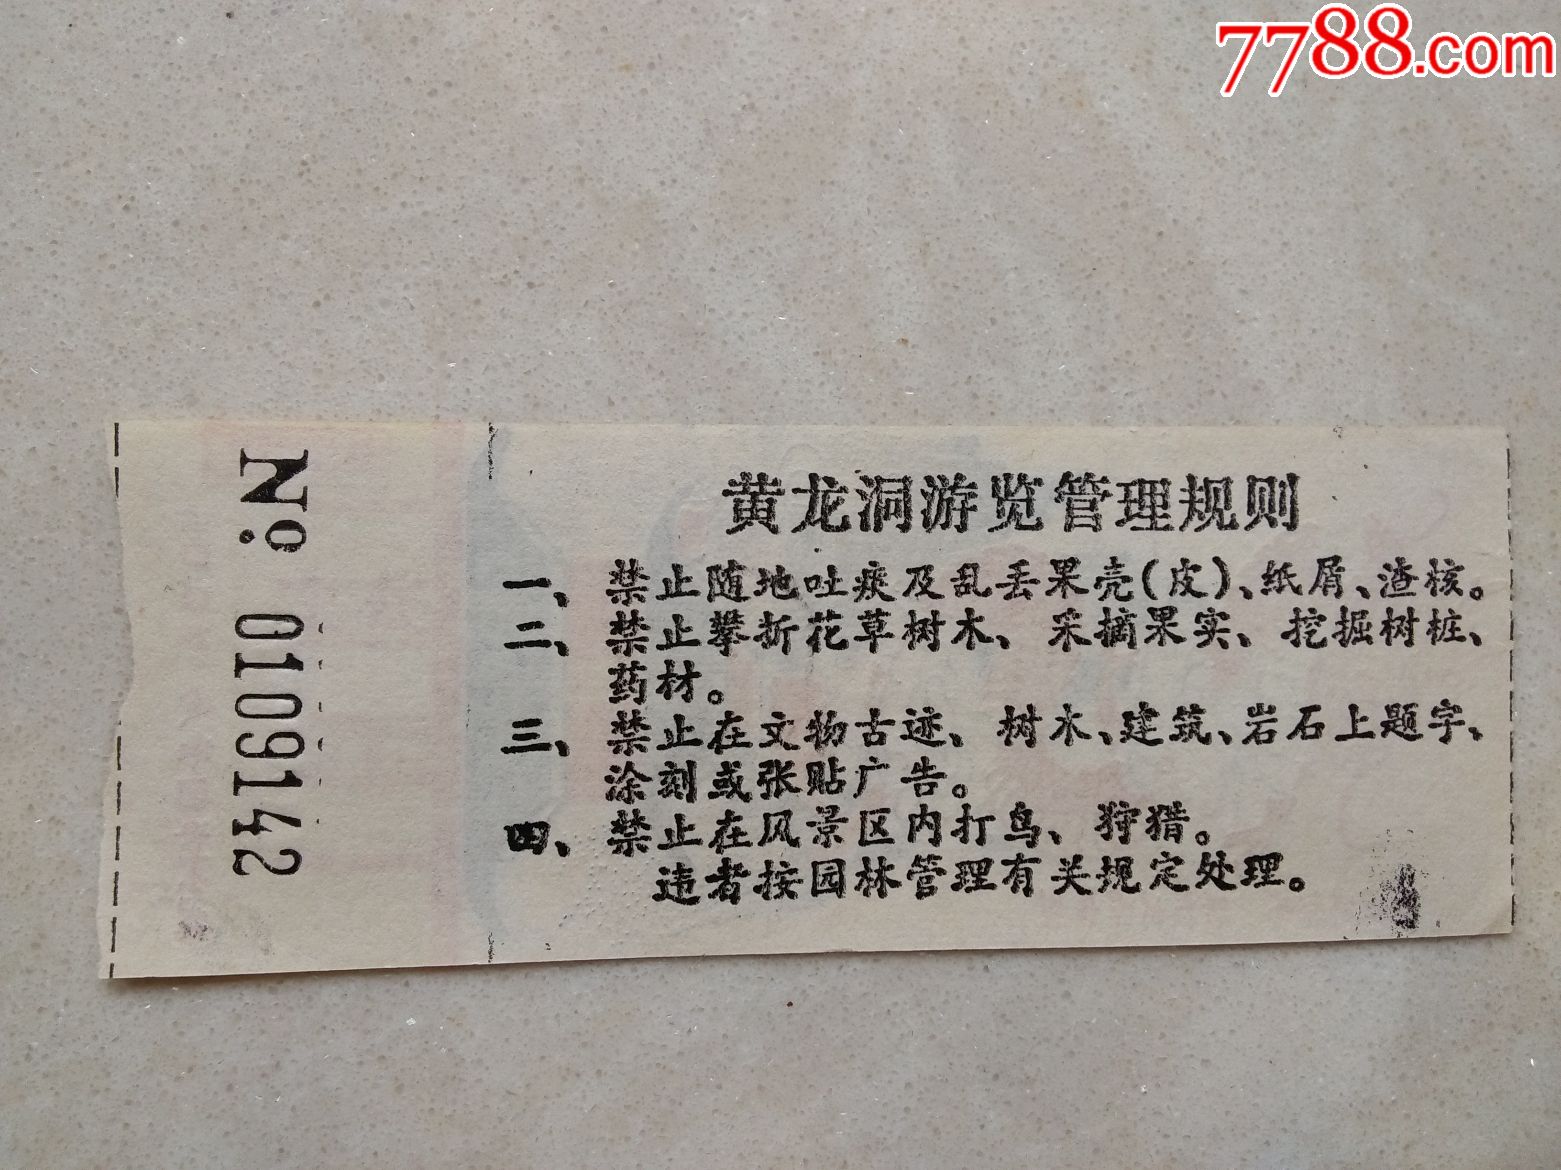 7788.com
№ 0109142
黄龙洞游览管理规则
一、禁止随地吐痰及乱丢果壳(皮)、纸屑、渣核。
二、禁止攀折花草树木、采摘果实、挖掘树桩、
药材。
三、禁止在文物古迹、树木、建筑、岩石上题字、
涂刻或张贴广告。
四、禁止在风景区内打鸟、狩猎。
违者按园林管理有关规定处理。